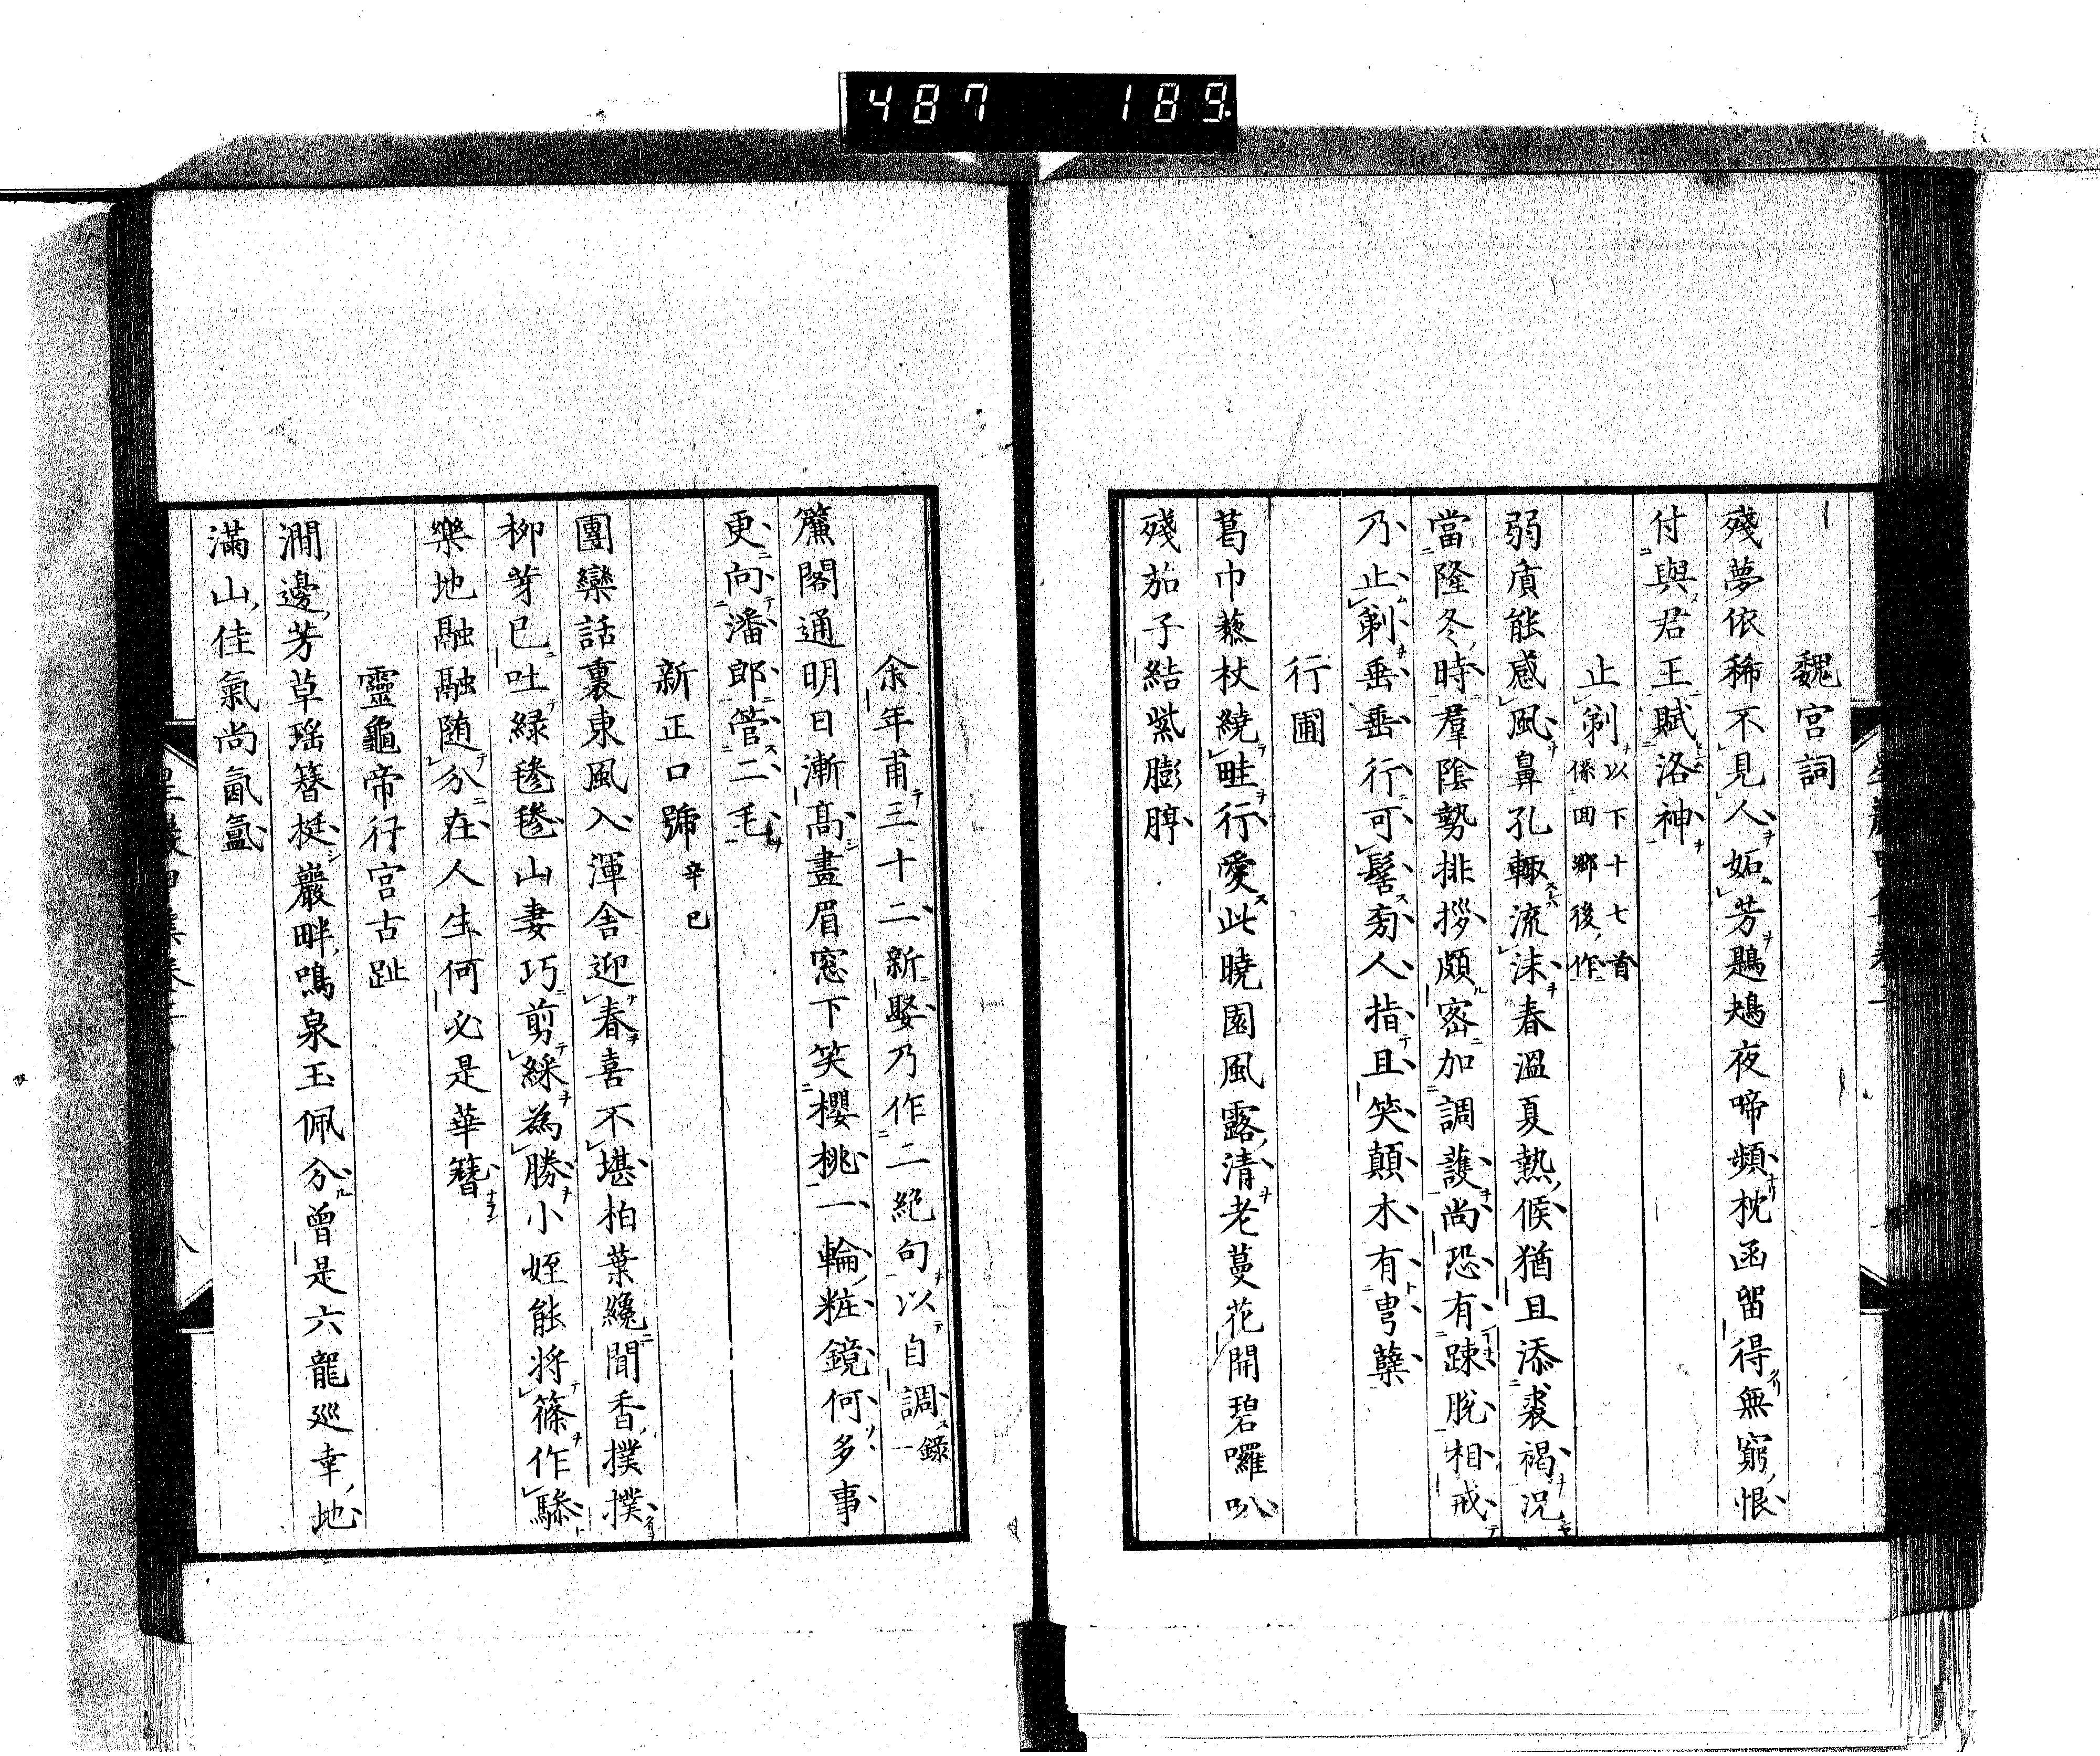 487 189
魏宮詞
殘夢依稀不見人妬芳鶗鴂夜啼頻枕函留得無窮恨
付與君王賦洛神
止剃以下十七首係回鄉後作
弱質能感風鼻孔輒流沫春溫夏熱候猶且添裘褐況
當隆冬時羣陰勢排拶頗密加調護尚恐有踈脫相戒
乃止剃垂垂行可髺旁人指且笑顛木有甹蘗
行圃
葛巾藜杖繞畦行愛此曉園風露清老蔓花開碧囉叭
殘茄子結紫膨脝
余年甫三十二新娶乃作二絕句以自調錄一
簾閣通明日漸高畫眉窓下笑櫻桃一輪粧鏡何多事
更向潘郎管二毛
新正口號辛巳
團欒話裏東風入渾舍迎春喜不堪柏葉纔聞香撲撲
柳芽已吐綠毿毿山妻巧剪綵為勝小姪能將篠作驂
樂地融融隨分在人生何必是華簪
靈龜帝行宮古趾
澗邊芳草瑶簪挺巖畔鳴泉玉佩分曾是六龍巡幸地
滿山佳氣尚氤氳
八